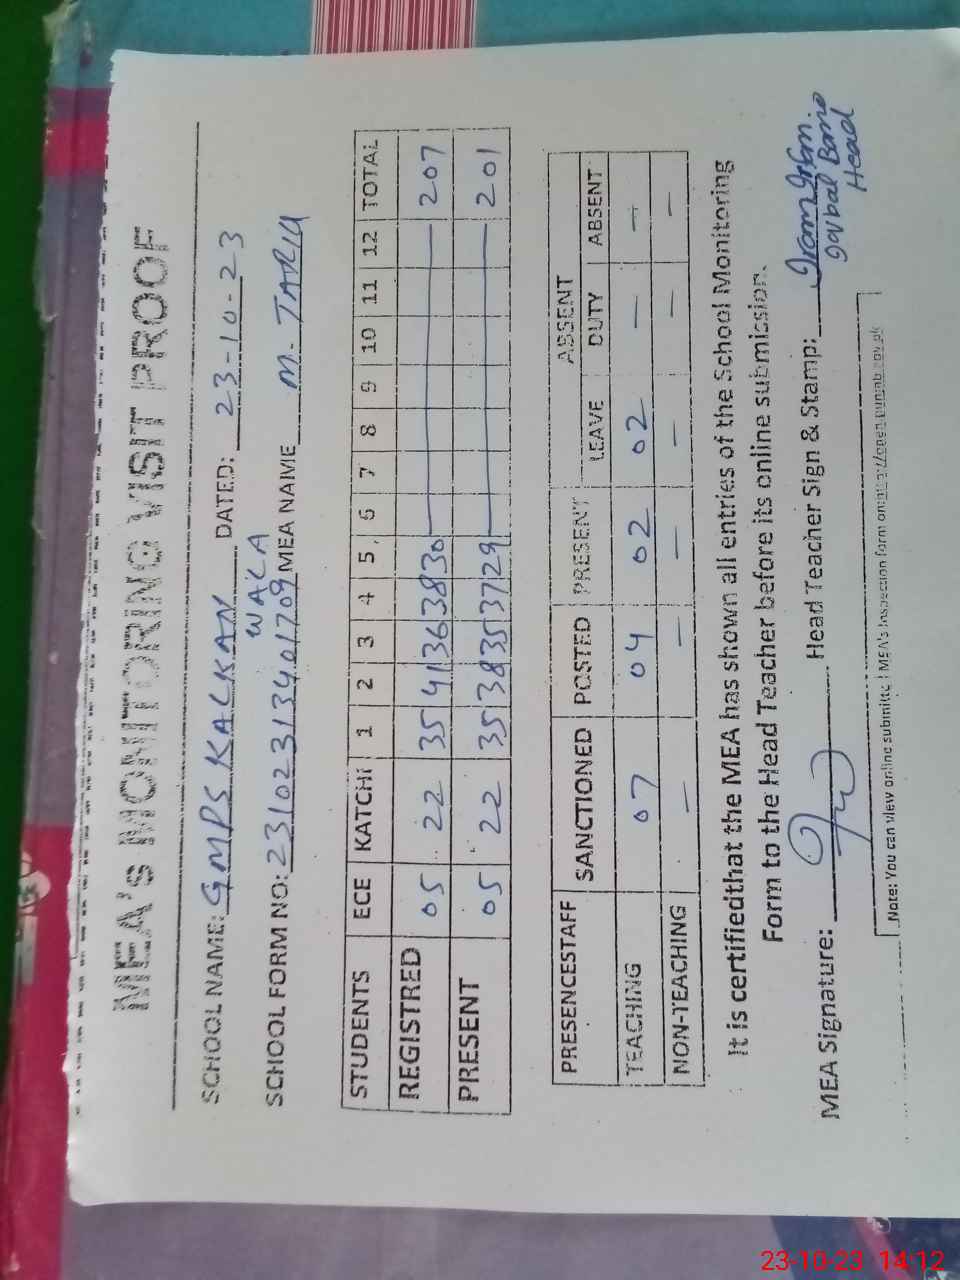 MEA's MONITORING VISIT PROOF
SCHOOL NAME: GMPS KALKAN WALA DATED: 23-10-23
SCHOOL FORM NO: 23102313401709 MEA NAME M. TARIQ
STUDENTS ECE KATCHI 1 2 3 4 5 6 7 8 9 10 11 12 TOTAL
REGISTRED 05 22 35 41 36 38 30 — 207
PRESENT 05 22 35 38 35 37 29 — 201
PRESENCESTAFF SANCTIONED POSTED PRESENT ABSENT
LEAVE DUTY ABSENT
TEACHING 07 04 02 02 — —
NON-TEACHING — — — — — —
It is certifiedthat the MEA has shown all entries of the School Monitoring
Form to the Head Teacher before its online submission.
MEA Signature: Head Teacher Sign & Stamp: Iram Irfan.
Head
Note: You can view online submitted MEA's Inspection form on:
23-10-23 14:12